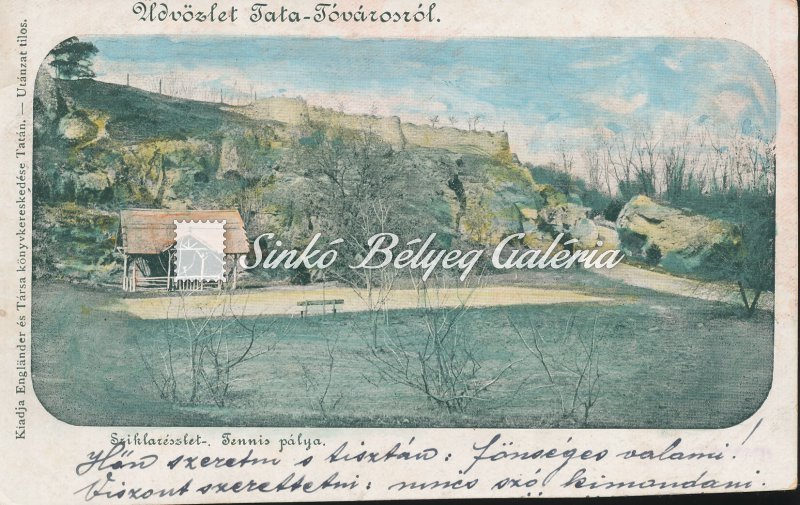 Üdvözlet Tata-Tóvárosról.
Kiadja Engländer és Társa könyvkereskedése Tatán. — Utánzat tilos.
Sinkó Bélyeg Galéria
Sziklarészlet-. Tennis pálya.
Hőn szeretni s tisztán: fönséges valami!
Viszont szerettetni: nincs szó kimondani.